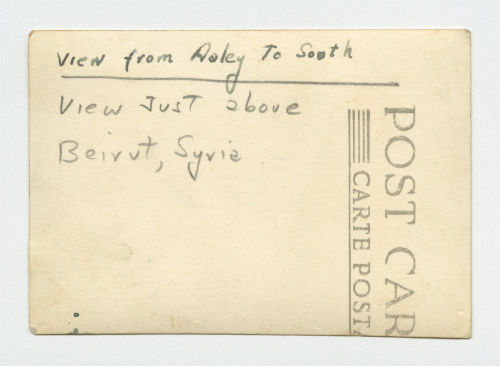 View from Aaley To South
View Just above
Beirut, Syria
POST CAR
CARTE POSTA